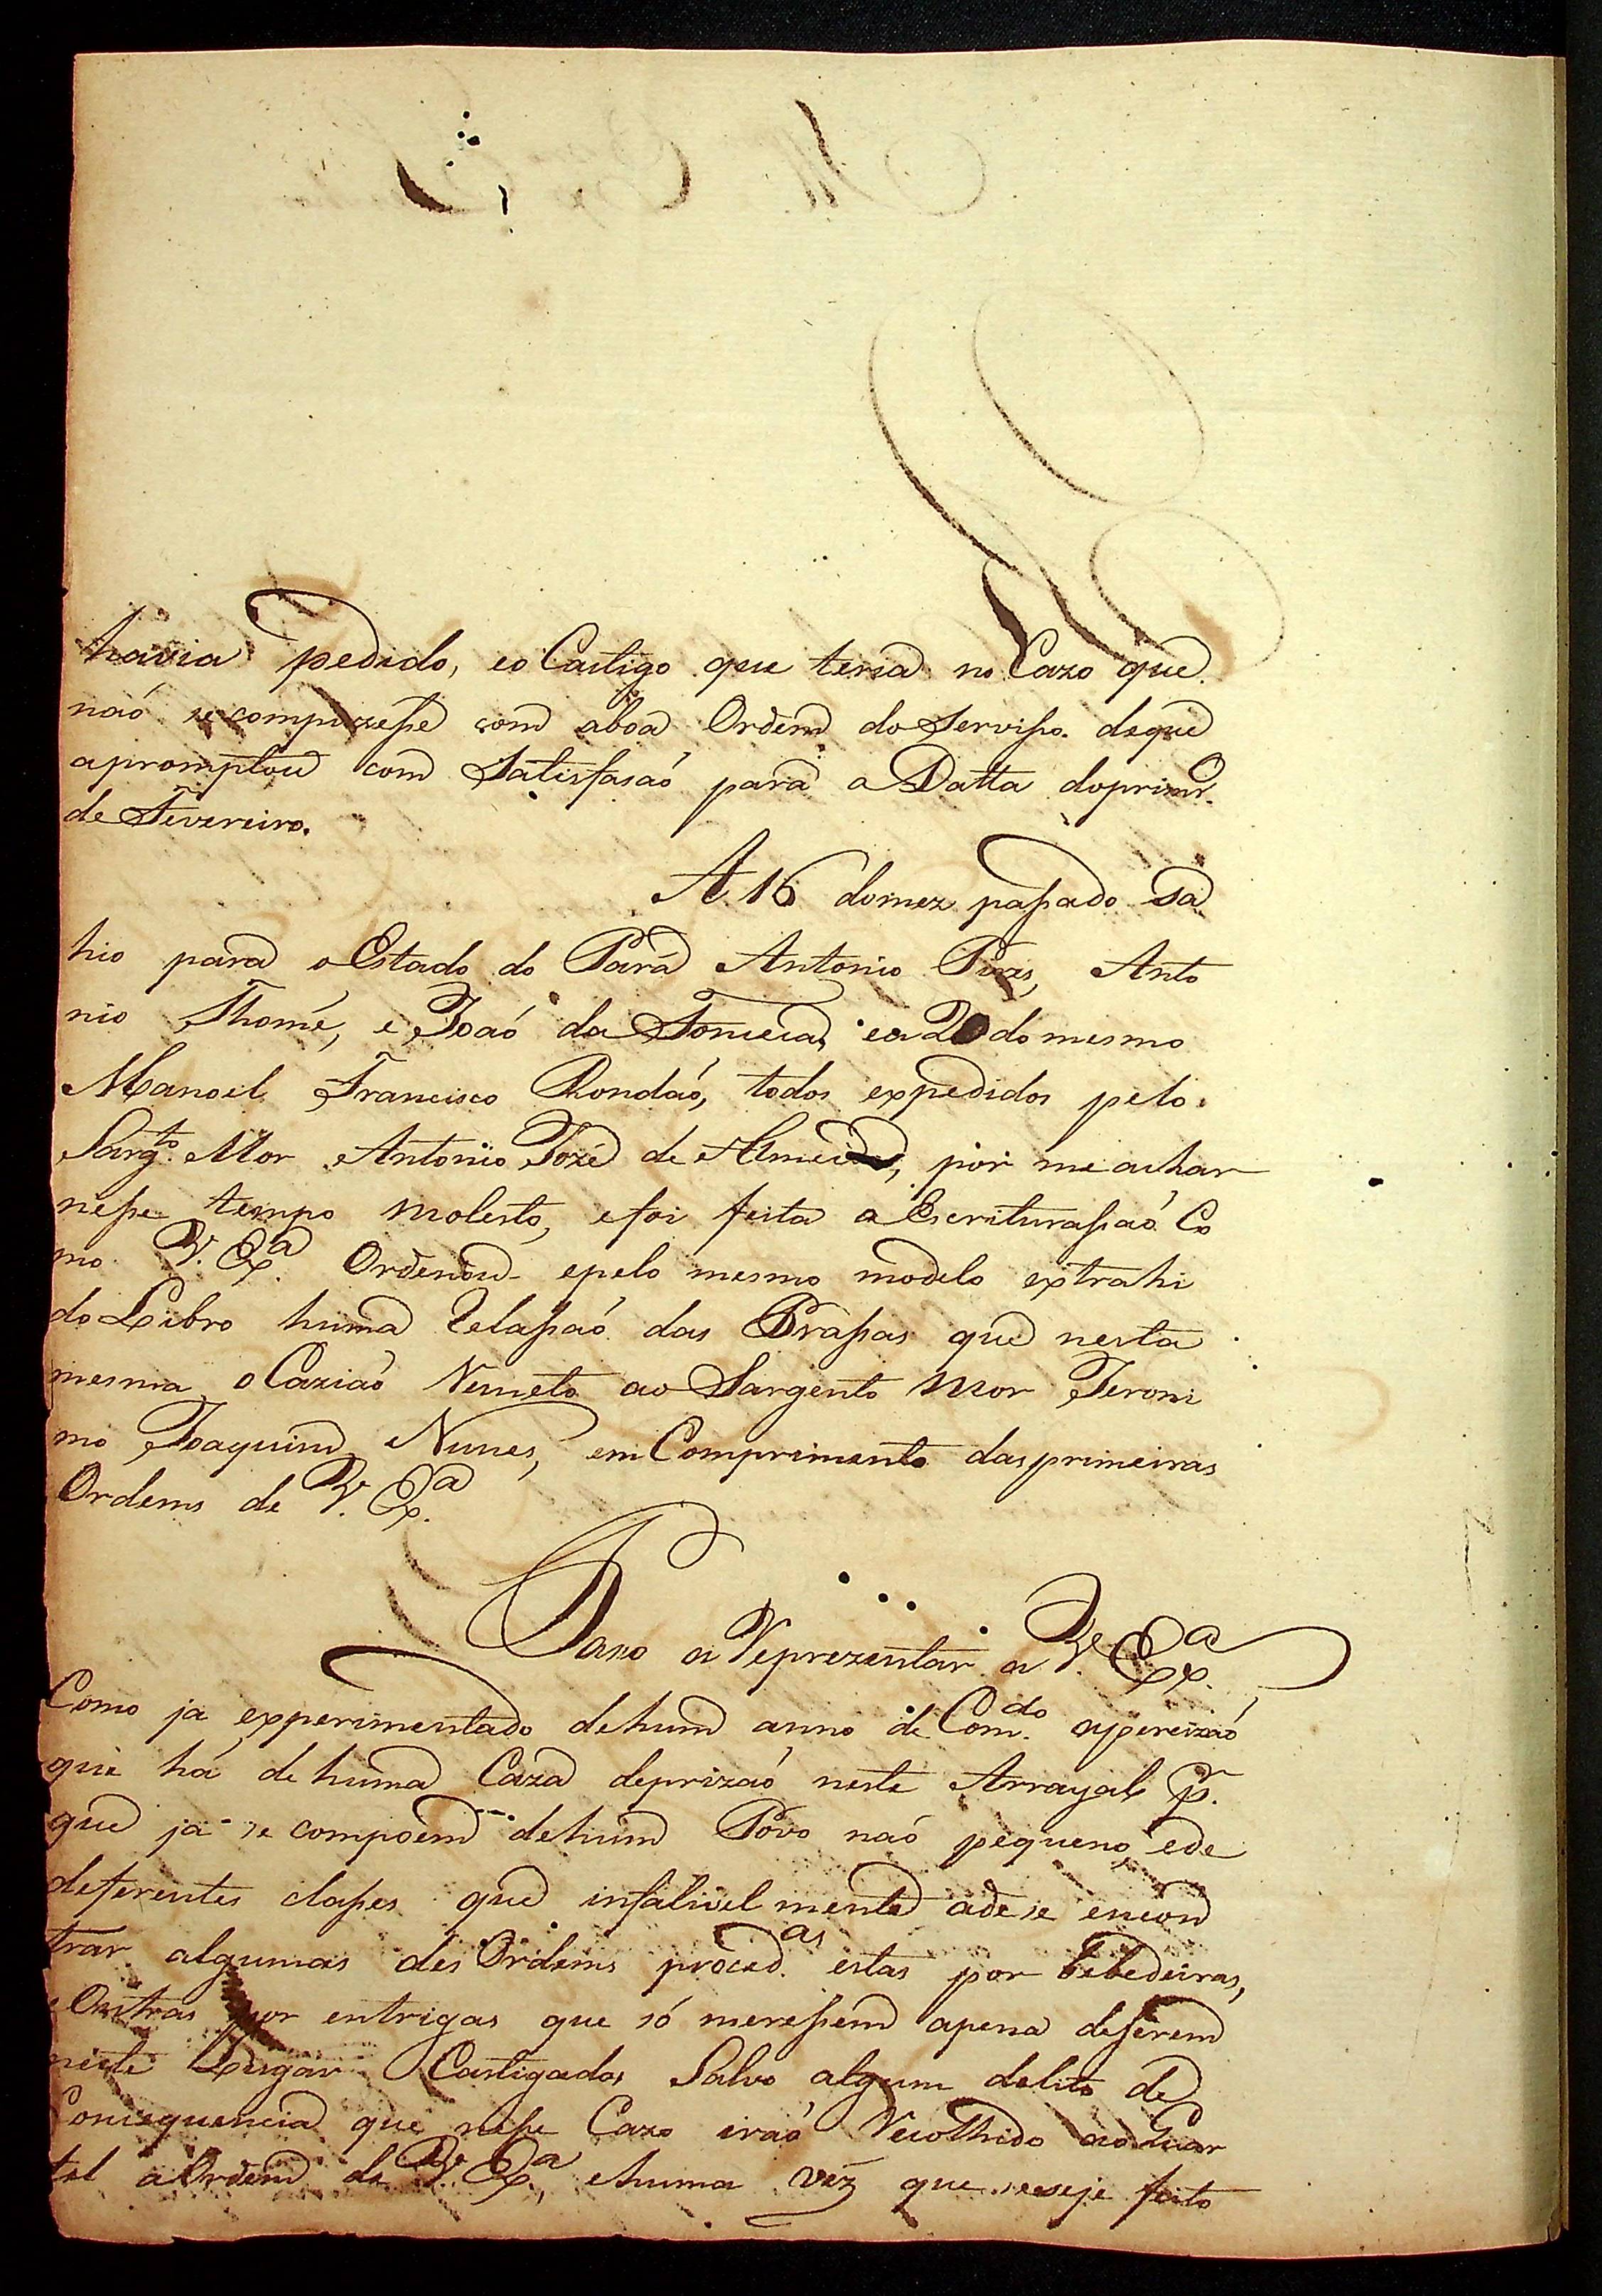 havia pedido, eo Castigo que teria no Cazo que
naó se compuzeſse com aboa Ordem do Serviſso. deque
apromptou com Satisfasaó para a Datta doprimr.º
de Fevereiro.
A 16 domez paſsado Sa
hio para o Estado do Pará Antonio Pires, Anto
nio Thomé, e Joaó da Fonceca, ea 20 do mesmo
Manoel Francisco Rondaó, todos expedidos pelo
Sarg.to Mor Antonio Jozé de Almeida, por me achar
neſse tempo molesto, efoi feita a Escrituraſsaó Co
mo V. Ex.ª Ordenou epelo mesmo modelo extrahi
do Libro huma Relaſsaó das Praſsas que nesta
mesma oCaziaó Remeto ao Sargento Mor Jeroni
mo Joaquim Nunes, em Comprimento das primeiras
Ordems de V. Ex.ª
Paso a Reprezentar a V. Ex.ª
Como ja experimentado dehum anno de Com.do apercizaó
que há dehuma Caza deprizaó neste Arrayal p.r
que ja se compoem dehum Povo naó pequeno, ede
deferentes claſses que infalivel mente adese encon
trar algumas des Ordems proced.as estas por bebedeiras,
e Outras por entrigas que só mereſsem apena deſerem
neste Lugar Castigados Salvo algum delito de
Consequencia que neſse Cazo iraó Recolhido ao Quar
tel a Ordem de V. Ex.ª, ehuma véz que seseje feito